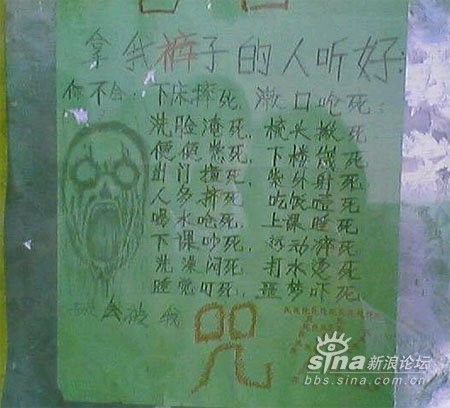 拿我裤子的人听好:
你不会: 下床摔死, 漱口呛死,
洗脸淹死, 梳头搬死
便便熏死, 下楼崴死
出门撞死, 紫外射死
人多挤死, 吃饭噎死
喝水呛死, 上课睡死
下课吵死, 运动猝死
洗澡闷死 打水烫死
睡觉叮死, 噩梦吓死
被我
咒
sina 新浪论坛
bbs.sina.com.cn